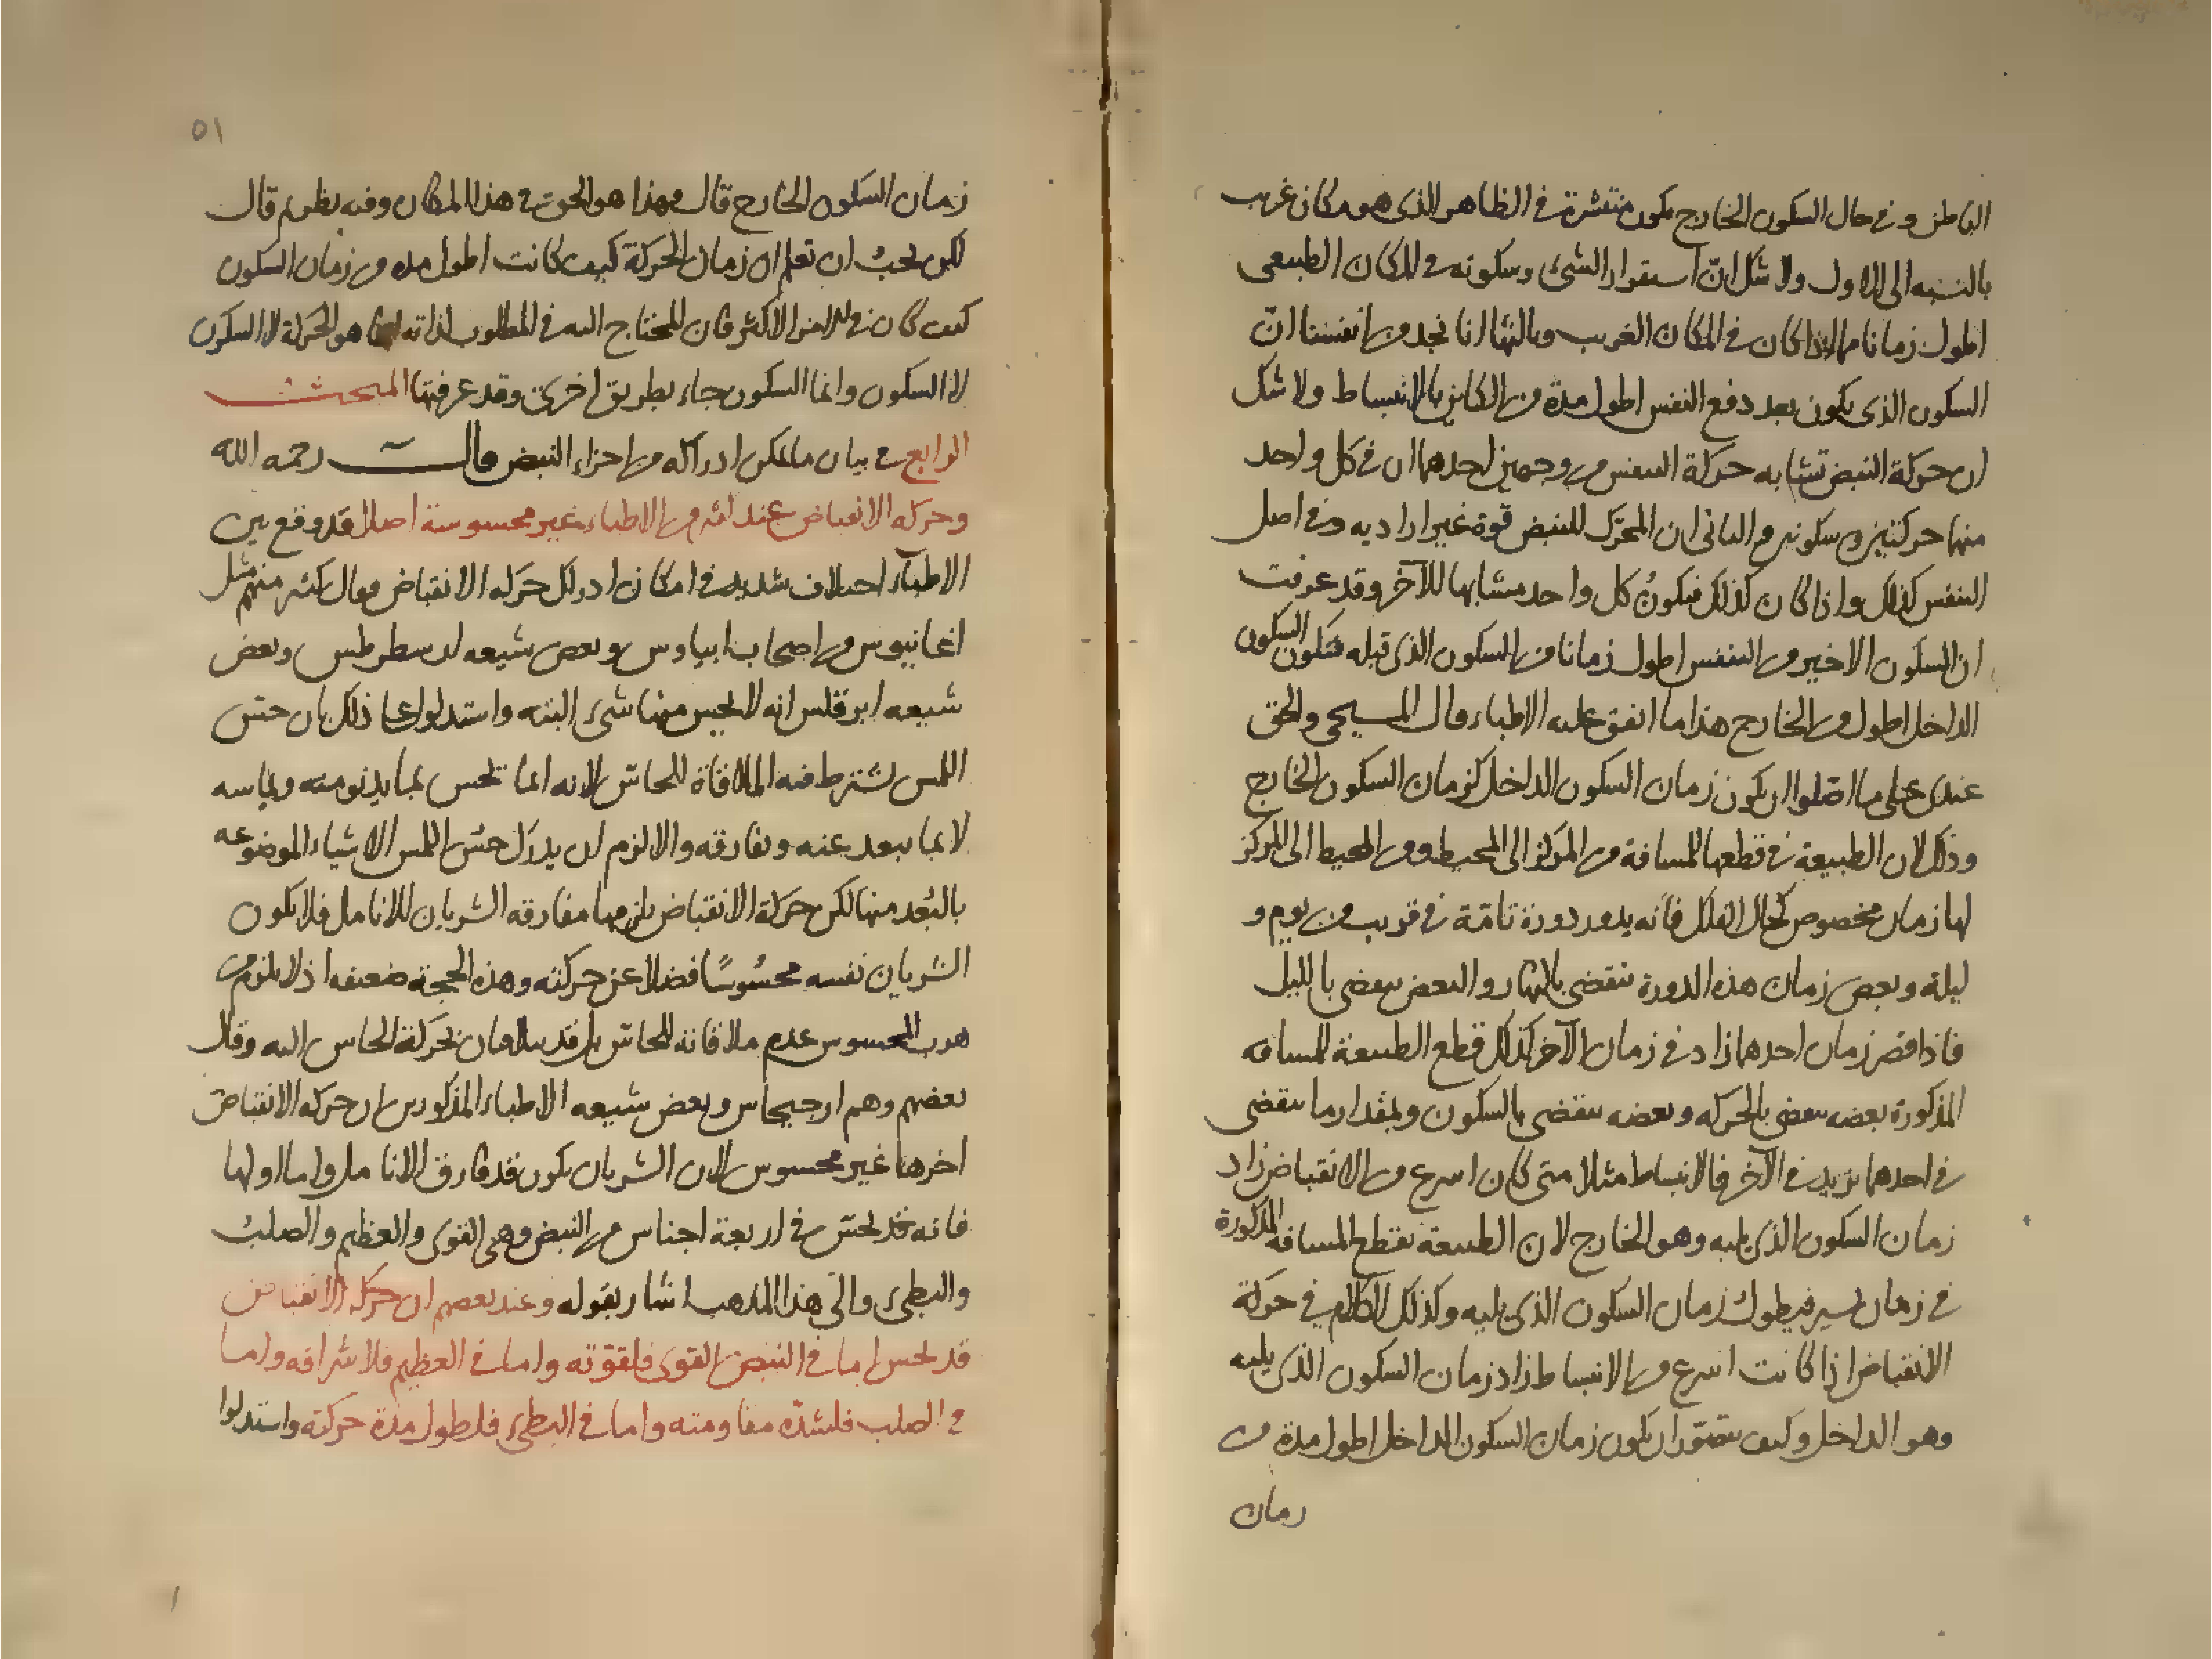 الباطن وفى حال السكون الخارج يكون منتشرة فى الظاهر الذى هو مكان غريب
بالنسبه الى الاول ولا شك انّ استقرار الشىء وسكونه فى المكان الطبيعى
اطول زمانا مما اذا كان فى المكان الغريب وبالثها انا نجد من انفسنا انّ
السكون الذى يكون بعد دفع النفس اطول مدة من الكاين بالانبساط ولا شك
ان حركة النبض تشابه حركة التنفس من وجهين احدهما ان فى كل واحد
منهما حركتين وسكونين والثانى ان المحرّك للنبض قوة غير ارادیه وفى اصل
التنفس كذلك واذا كان كذلك فيكونُ كل واحد مشابها للآخر وقد عرفت
ان السكون الاخير من التنفس اطول زمانا من السكون الذى قبله فيكون السكون
الداخل اطول من الخارج هذا ما اتفق عليه الاطباء وقال المسيحى والحق
عندى على ما اصّلوا ان يكون زمان السكون الداخل كزمان السكون الخارج
وذلك لان الطبيعة فى قطعها للمسافة من المركز الى المحيط ومن المحيط الى المركز
لها زمان مخصوص كحال الفلك فانه يدور دورة تامّة فى قريب من يوم و
ليلة وبعض زمان هذه الدورة تنقضى بالنهار والبعض ينقضى بالليل
فاذا قصر زمان احدهما زاد فى زمان الآخر كذلك قطع الطبيعة للمسافه
المذكورة بعضه ينقضى بالحركه وبعضه ينقضى بالسكون وبمقدار ما ينقضى
فى احدهما يزيد فى الآخر فالانبساط مثلا متى كان اسرع من الانقباض زاد
زمان السكون الذى يليه وهو الخارج لان الطبيعة تقطع المسافه المذكورة
فى زمان يسير فيطول زمان السكون الذى يليه وكذلك الكلام فى حركة
الانقباض اذا كانت اسرع من الانبساط زاد زمان السكون الذى يليه
وهو الداخل وكيف يتصوّر ان يكون زمان السكون الداخل اطول مدة من
زمان
٥١
زمان السكون الخارج قال فهذا هو الحق فى هذا المكان وفيه نظر ثم قال
لكن يجبُ ان تعلم ان زمان الحركة كيف كانت اطول مده من زمان السكون
كيف كان فى الامر الاكثر فان المحتاج اليه فى المطلوب لذاته انما هو الحركة لا السكون
لا السكون وانما السكون جاء بطريق اخرى وقد عرفتها المبحث
الرابع فى بيان ما يمكن ادراكه من اجزاء النبض قال رحمه الله
وحركه الانقباض عند اكثر من الاطباء غير محسوسة اصلا قد وقع بين
الاطباء اختلاف شديد فى امكان ادراك حركه الانقباض فقال كثير منهم مثل
اغانيوس من اصحاب وبعض شيعه وبعض
شيعه ابرقلس انه لا يحس منها شىء البته واستدلوا على ذلك بان حسّ
اللمس يشترط فيه الملاقاة للحاسّ لانه انما تحس بما يدنو منه ويماسه
لا بما يبعد عنه ويفارقه والا لزم ان يدرك حسّ اللمس الاشياء الموضوعه
بالبُعد منها لكن حركة الانقباض يلزمها مفارقه الشريان للانامل فلا يكون
الشريان نفسه محسُوسًا فضلا عن حركته وهذه الحجة ضعيفه اذ لا يلزم من
هرب المحسوس عدم ملاقاته للحاسّ بل قد يتلاقيان بحركة الحاس اليه وقال
بعضهم وهم ارجيجانس وبعض شيعه الاطباء المذكورين ان حركه الانقباض
اخرها غير محسوس لان الشريان يكون قد فارق الانامل واما اولها
فانه قد يحسّ فى اربعة اجناس من النبض وهى القوى والعظيم والصلبُ
والبطىء والى هذا المذهب اشار بقوله وعند بعضهم ان حركه الانقباض
قد يحس اما فى النبض القوى فلقوّته واما فى العظيم فلاشرافه واما
فى الصلب فلشدّه مقاومته واما فى البطىء فلطول مدة حركته واستدلوا